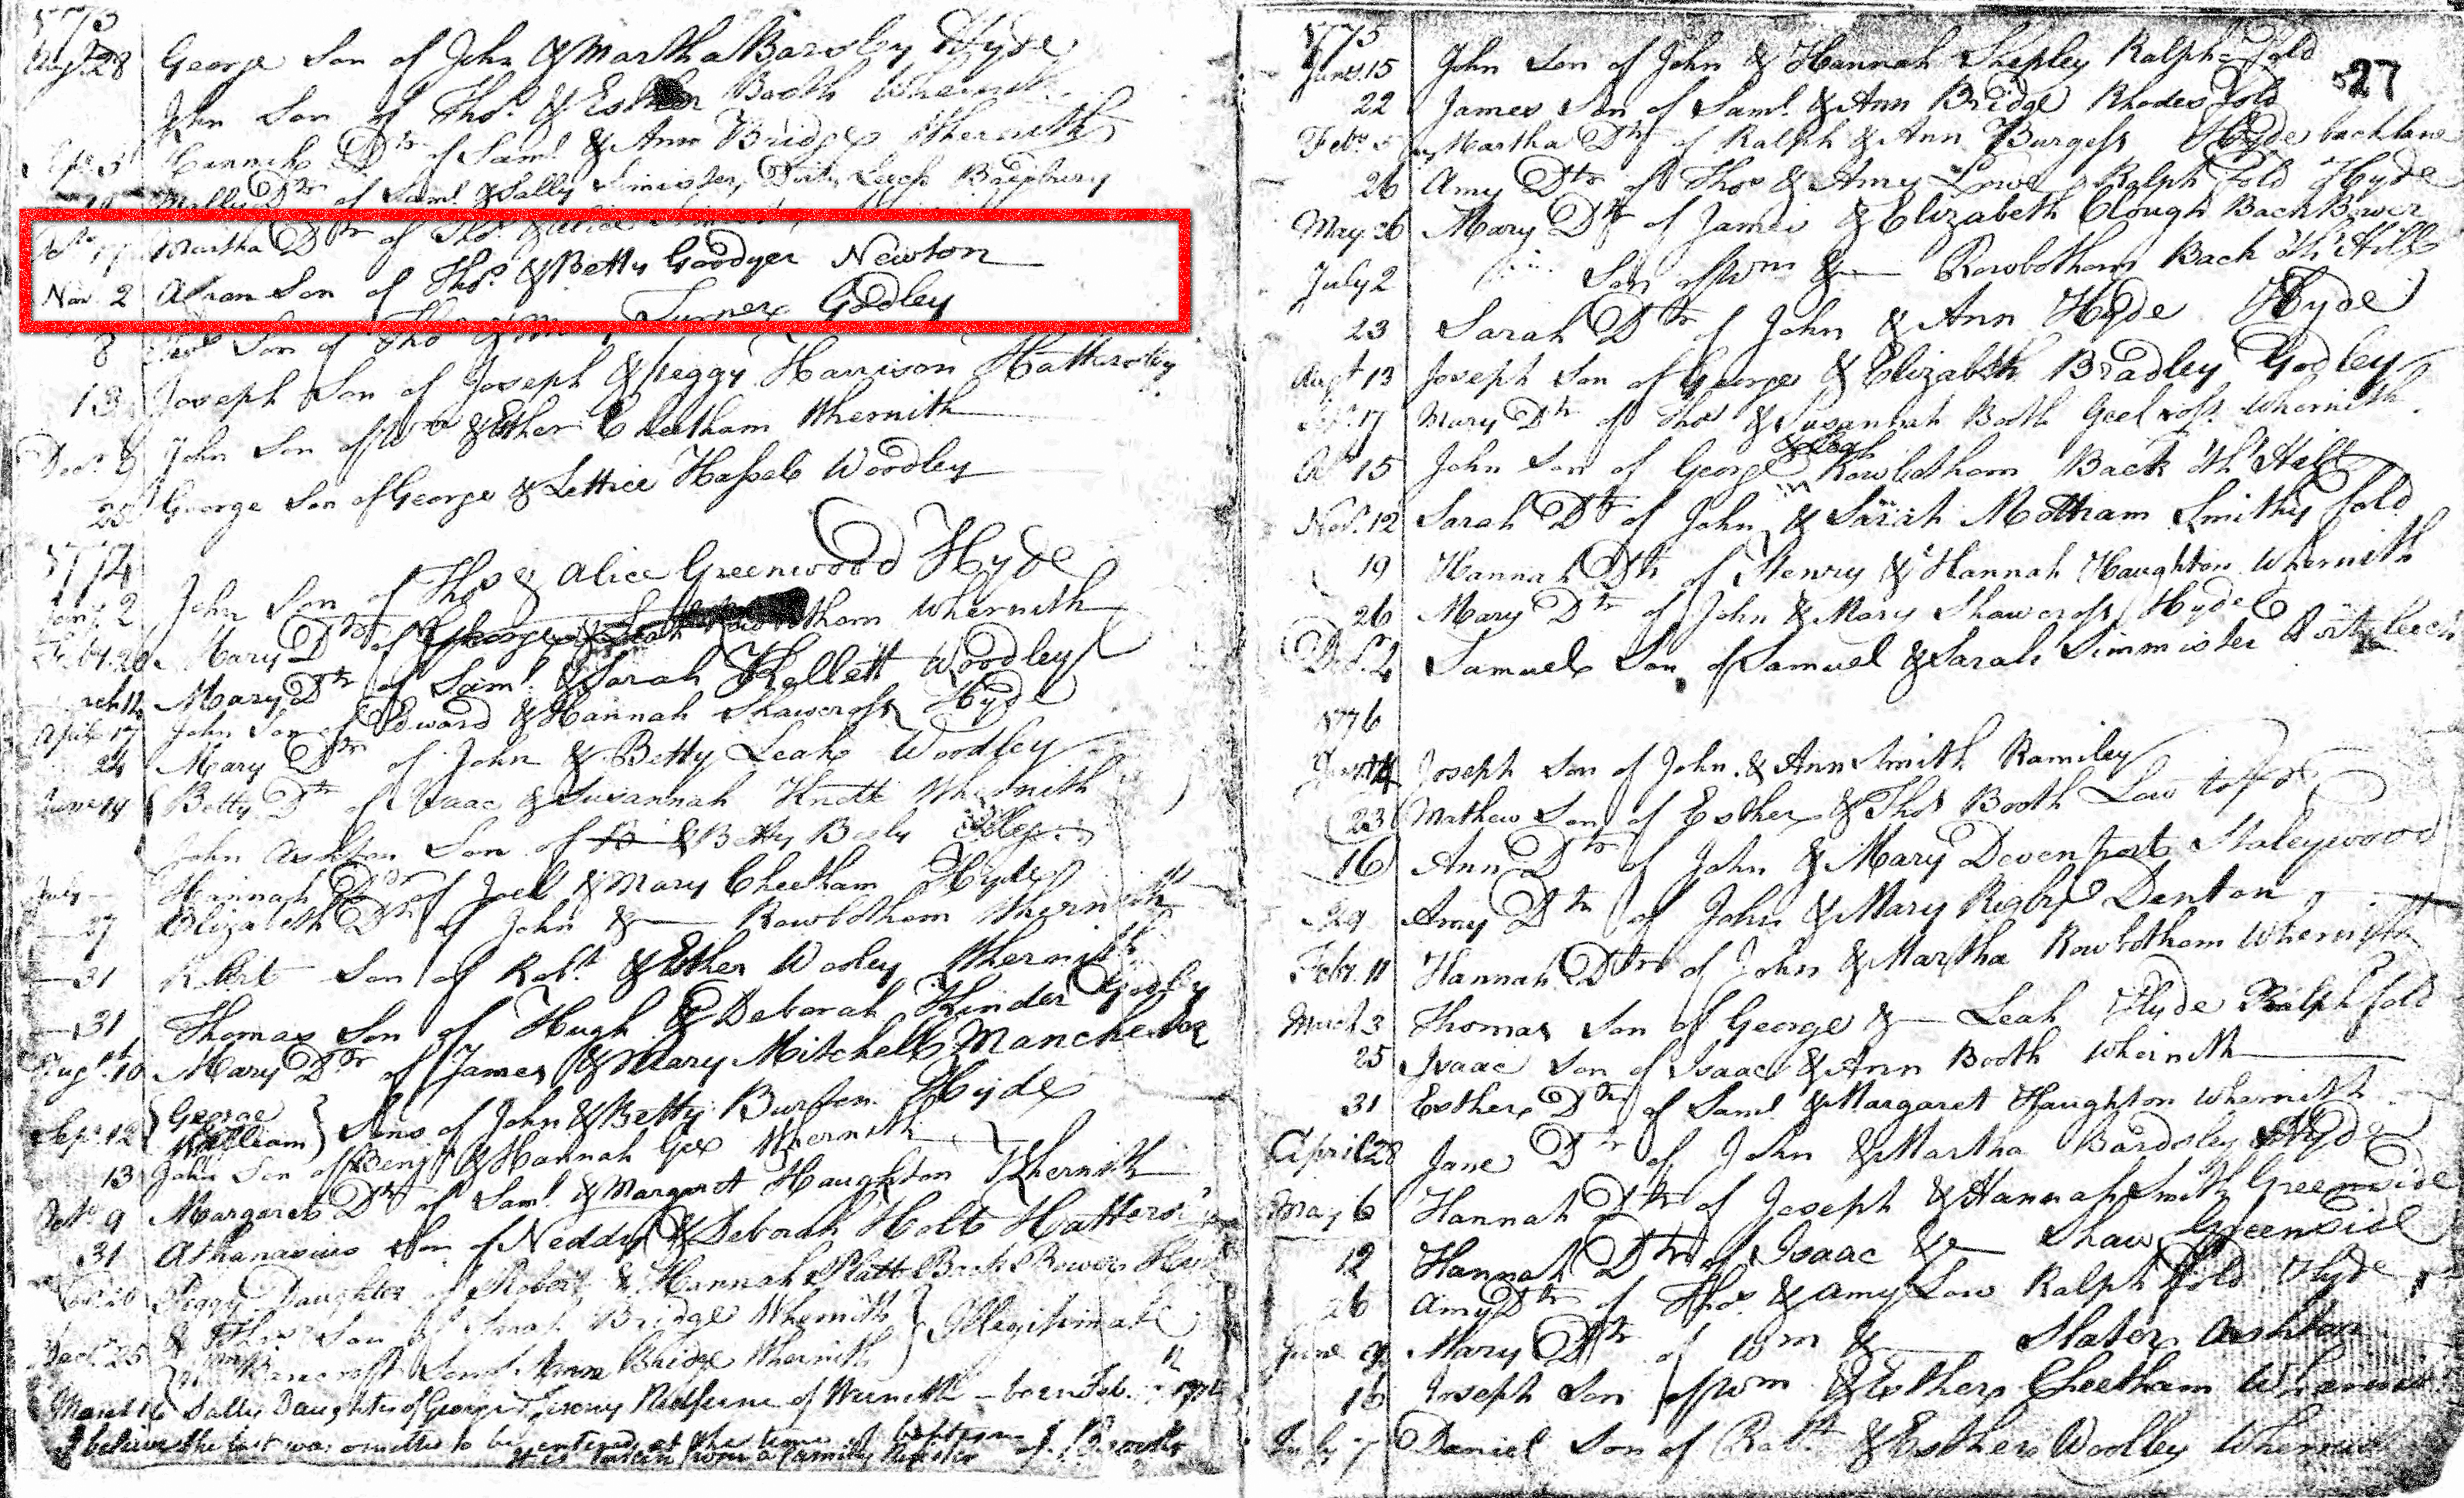 1773
Augt. 28 George Son of John & Martha Barsley Hyde
John Son of Thos. & Esther Booth Whernith
3 Hannah Dtr of Saml. & Ann Bridge Whernith
Dtr of Saml. & Sally Simister, Dirty Leech
Martha Dtr of Thos. & Alice
Nov. 2 Aaron Son of Thos. & Betty Goodyer Newton
8 Son of Tho & Turner Godley
13 Joseph Son of Joseph & Peggy Harrison Hattersley
Decr. John Son of Wm & Esther Cheetham Whernith
George Son of George & Lettice Hassel Woodley
1774
Jany. 2 John Son of Thos & Alice Greenwood Hyde
Feby. 20 Mary Dtr of George & Leah Whernith
Mary Dtr of Saml. & Sarah Woodley
April 17 John Son of Edward & Hannah Shawcross Hyde
24 Mary Dtr of John & Betty Leah Woodley
June 19 Betty Dtr of Isaac & Susannah Knott Whernith
John Ashton Son of & Betty
July Hannah Dtr of Joel & Mary Cheetham Hyde
27 Elizabeth Dtr of John & — Rowbotham Whernith
31 Robert Son of Robt. & Esther Wooley Whernith
31 Thomas Son of Hugh & Deborah Kinder Godley
Augt. 10 Mary Dtr of James & Mary Mitchell Manchester
Sepr. 12 { George William } Sons of John & Betty Burton Hyde
13 John Son of Benj. & Hannah Gee Whernith
Octr. 9 Margaret Dtr of Saml. & Margaret Haughton Whernith
31 Athanasius Son of Neddy & Deborah Holt
Peggy Daughter of Robert & Hannah Platt Back Bower
Decr. 25 Son of Sarah Bridge Whernith } Illegitimate
Bancroft Son of Ann Bridge Whernith
March 16 Sally Daughter of George & Redferne of Werneth – born Feb.
I believe the last was omitted to be entered at the time of baptism
It is taken from a family Register
27
1775
Jany. 15 John Son of John & Hannah Shepley Ralph Fold
22 James Son of Saml. & Ann Bridge Rhodes Fold
Feby. 5 Martha Dtr of Ralph & Ann Burgess Hyde back lane
26 Amy Dtr of Thos & Amy Lowe Ralph Fold Hyde
May 26 Mary Dtr of James & Elizabeth Clough Back Bower
July 2 Son of Wm & — Rowbotham Back oth Hill
23 Sarah Dtr of John & Ann Hyde Hyde
Augt 13 Joseph Son of George & Elizabeth Bradley Godley
17 Mary Dtr of Thos & Susannah Booth Whernith
Leah
Oct 15 John Son of George Rowbotham Back oth Hill
Nov. 12 Sarah Dtr of John & Sarah Mottram Smithy fold
19 Hannah Dtr of Henry & Hannah Haughton Whernith
26 Mary Dtr of John & Mary Shawcross Hyde
Samuel Son of Samuel & Sarah Simmister Dirty leech
1776
Joseph Son of John & Ann Smith Ramiley
23 Mathew Son of Esther & Thos Booth Low
16 Ann Dtr of John & Mary Devenport Staleywood
29 Amy Dtr of John & Mary Rigby Denton
Feby. 11 Hannah Dtr of John & Martha Rowbotham Whernith
March 3 Thomas Son of George & — Leah Hyde Ralph fold
25 Isaac Son of Isaac & Ann Booth Whernith
31 Esther Dtr of Saml. & Margaret Haughton Whernith
April 28 Jane Dtr of John & Martha Bardsley Hyde
May 6 Hannah Dtr of Joseph & Hannah Smith Greenside
12 Hannah Dtr of Isaac & — Shaw Greenside
26 Amy Dtr of Thos. & Amy Low Ralph Fold Hyde
June 9 Mary Dtr of Wm & — Slater Ashton
16 Joseph Son of Wm & Esther Cheetham Whernith
July 7 Daniel Son of Robt. & Esther Woolley Whernith